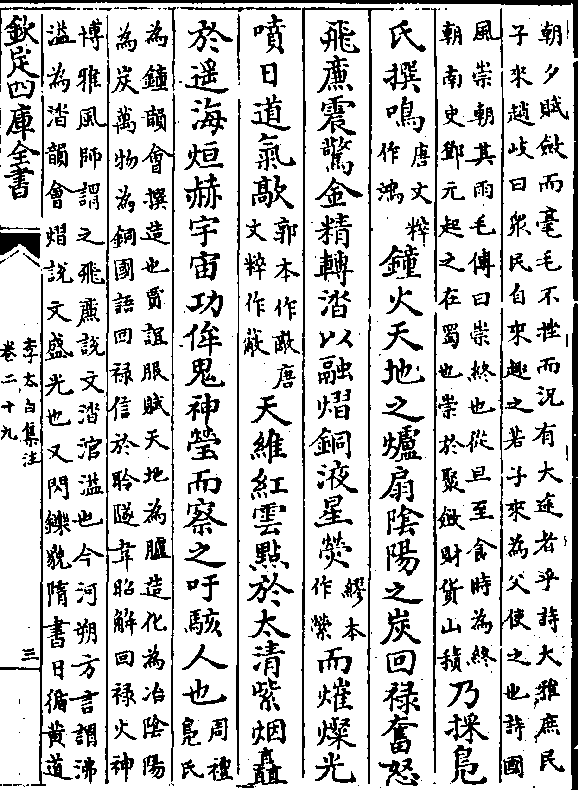 朝夕賦斂而毫毛不挫而況有大途者乎詩大雅庶民
子來趙岐曰衆民自來趣之若子來為父使之也詩國
風崇朝其雨毛傳曰崇終也從旦至食時為終
朝南史鄧元起之在蜀也崇於聚斂財貨山積
乃採鳬
氏撰鳴
唐文粹
作鴻
鐘火天地之爐扇陰陽之炭回祿奮怒
飛廉震驚金精轉涾以融熠銅液星熒
繆本
作縈
而燿燦光
噴日道氣歊
郭本作敵唐
文粹作蔽
天維紅雲點於太清紫烟矗
於遥海烜赫宇宙功侔鬼神瑩而察之吁駭人也
周禮
鳬氏
為鐘韻會撰造也賈誼服賦天地為臚造化為冶陰陽
為炭萬物為銅國語回祿信於聆隧韋昭解回祿火神
博雅風師謂之飛廉說文涾涫溢也今河朔方言謂沸
溢為涾韻會熠說文盛光也又閃鑠貌隋書日循黄道
欽定四庫全書
李太白集注
卷二十九
三